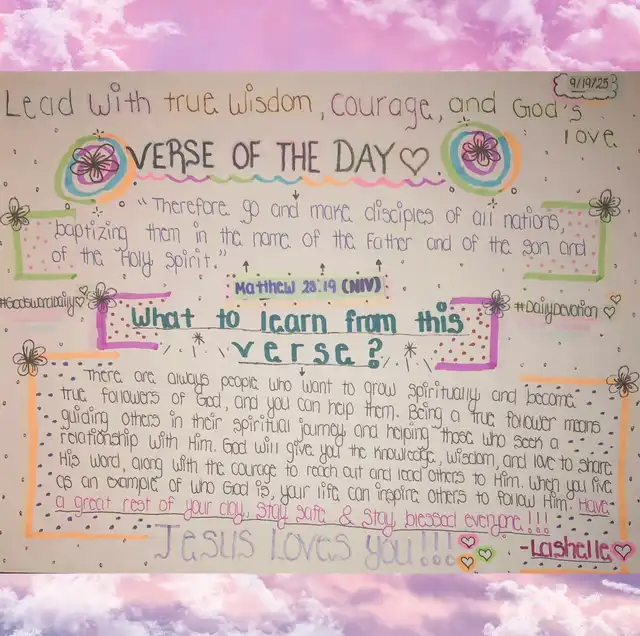 9/19/25
Lead with true wisdom, courage, and God's
love
VERSE OF THE DAY
"Therefore go and make disciples of all nations,
baptizing them in the name of the Father and of the son and
of the Holy Spirit."
Matthew 28:19 (NIV)
#GodswordDaily
#DailyDevotion
What to learn from this
verse?
There are always people who want to grow spiritually and become
true followers of God, and you can help them. Being a true follower means
guiding others in their spiritual journey and helping those who seek a
relationship with Him. God will give you the knowledge, wisdom, and love to share
His word, along with the courage to reach out and lead others to Him. When you live
as an example of who God is, your life can inspire others to follow Him. Have
a great rest of your day, stay safe & stay blessed everyone!!!
Jesus Loves you!!!
-Lashelle